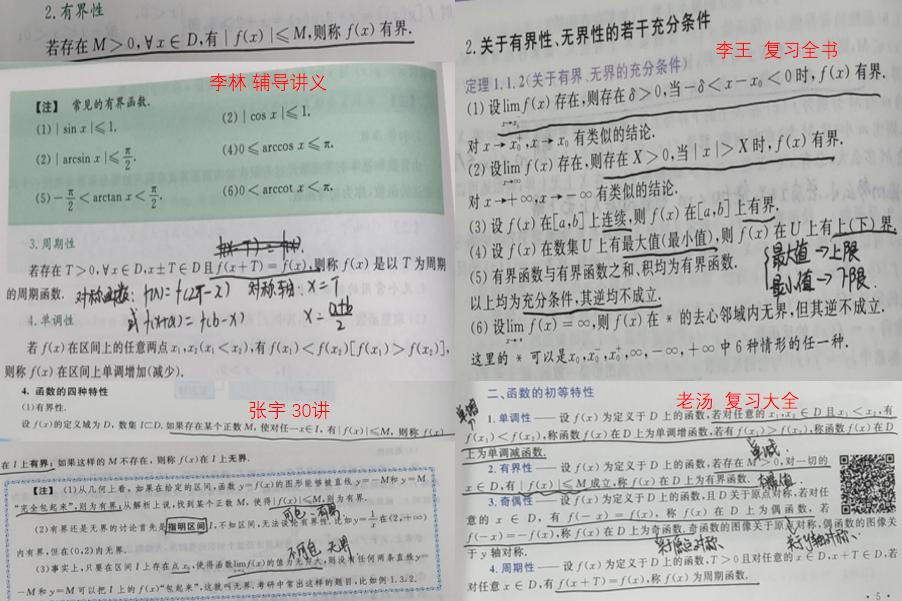 2.有界性
若存在 M>0,∀x∈D,有|f(x)|≤M,则称 f(x)有界.
李林 辅导讲义
【注】 常见的有界函数.
(1)|sin x|≤1.
(2)|cos x|≤1.
(2)|arcsin x|≤π/2.
(4)0≤arccos x≤π.
(5)-π/2<arctan x<π/2.
(6)0<arccot x<π.
3.周期性
若存在 T>0,∀x∈D,x±T∈D且f(x+T)=f(x),则称 f(x)是以 T 为周期
的周期函数.
对称函数:
对称轴:
x=(a+b)/2
4.单调性
若 f(x)在区间上的任意两点x₁,x₂(x₁<x₂),有 f(x₁)<f(x₂)[f(x₁)>f(x₂)],
则称 f(x)在区间上单调增加(减少).
2.关于有界性、无界性的若干充分条件
李王 复习全书
定理 1.1.2(关于有界、无界的充分条件)
(1)设lim f(x)存在,则存在δ>0,当-δ<x-x₀<0时,f(x)有界.
x→x₀⁻
对 x→x₀⁺,x→x₀ 有类似的结论.
(2)设lim f(x)存在,则存在X>0,当|x|>X时,f(x)有界.
x→∞
对 x→+∞,x→-∞有类似的结论.
(3)设 f(x)在[a,b]上连续,则 f(x)在[a,b]上有界.
(4)设 f(x)在数集U上有最大值(最小值),则 f(x)在U上有上(下)界.
(5)有界函数与有界函数之和、积均为有界函数.
最大值→上限
最小值→下限
以上均为充分条件,其逆均不成立.
(6)设lim f(x)=∞,则 f(x)在 * 的去心邻域内无界,但其逆不成立.
x→*
这里的 * 可以是x₀,x₀⁻,x₀⁺,∞,-∞,+∞ 中6种情形的任一种.
4. 函数的四种特性
张宇 30讲
(1)有界性.
设 f(x)的定义域为 D, 数集 I⊂D. 如果存在某个正数 M, 使对任一x∈I, 有|f(x)|≤M, 则称 f(x)
在 I 上有界; 如果这样的 M 不存在, 则称 f(x)在 I 上无界.
【注】(1)从几何上看, 如果在给定的区间, 函数 y=f(x)的图形能够被直线 y=-M和 y=M
“完全包起来”, 则为有界; 从解析上说, 找到某个正数 M, 使得|f(x)|≤M, 则为有界.
可包→有界
(2)有界还是无界的讨论首先是指明区间I, 不知区间, 无法谈论有界性. 比如 y=1/x在(2,+∞)
内有界, 但在(0,2)内无界.
不可包 无界
(3)事实上, 只要在区间 I 上存在点 x₀, 使得函数lim f(x)的值为无穷大, 则没有任何两条直线y=
-M和 y=M可以把 I 上的 f(x)“包起来”, 这就叫无界. 考研中常出这样的题目, 比如例1.3.2.
二、函数的初等特性
老汤 复习大全
1. 单调性 —— 设 f(x) 为定义于 D 上的函数, 若对任意的 x₁,x₂∈D 且x₁<x₂, 有
单增
f(x₁)<f(x₂), 称函数 f(x)在 D 上为单调增函数, 若有f(x₁)>f(x₂), 称函数 f(x)在 D
上为单调减函数.
单减.
2. 有界性 —— 设 f(x) 为定义于 D 上的函数, 若存在 M>0, 对一切的
x∈D, 有|f(x)|≤M 成立, 称 f(x)在 D 上为有界函数.
3. 奇偶性 —— 设 f(x) 为定义于 D 上的函数, 且 D 关于原点对称, 若对任
意的 x∈D, 有 f(-x)=f(x), 称 f(x) 在 D 上为偶函数, 若
f(-x)=-f(x), 称 f(x)在 D 上为奇函数. 奇函数的图像关于原点对称, 偶函数的图像关
于 y 轴对称.
关于原点对称.
关于y轴对称.
4. 周期性 —— 设 f(x)为定义于 D 上的函数, T>0 且对任意的 x∈D, x+T∈D, 若
对任意 x∈D, 有 f(x+T)=f(x), 称 f(x)为周期函数.
· 5 ·